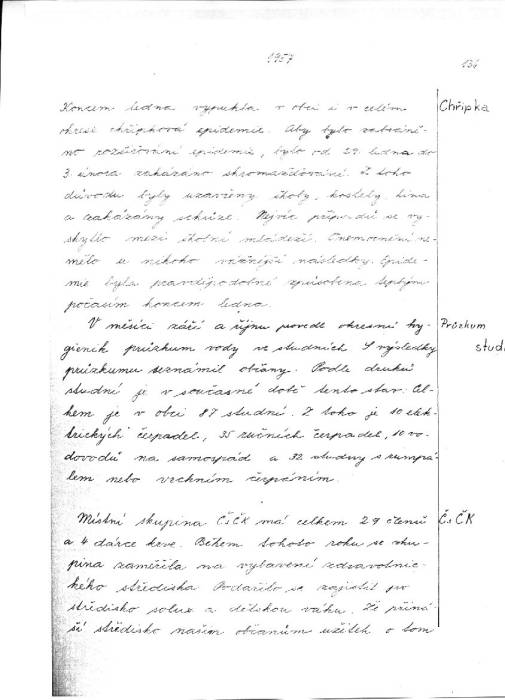 1957
136
Koncem ledna vypukla v obci i v celém
okrese chřipková epidemie. Aby bylo zabráně-
no rozšiřování epidemie, bylo od 29. ledna do
3. února zakázáno shromažďování. Z toho
důvodu byly uzavřeny školy, kostely, kina
a zakázány schůze. Nejvíc případů se vy-
skytlo mezi školní mládeží. Onemocnění ne-
mělo u nikoho vážnější následky. Epide-
mie byla pravděpodobně způsobena teplým
počasím koncem ledna.
Chřipka
V měsíci září a říjnu provedl okresní hy-
gienik průzkum vody ve studních. S výsledky
průzkumu seznámil občany. Podle druhů
studní je v současné době tento stav. Cel-
kem je v obci 87 studní. Z toho je 10 elek-
trických čerpadel, 35 ručních čerpadel, 10 vo-
dovodů na samospád a 32 studny s rumpá-
lem nebo vrchním čerpáním.
Průzkum
stud
Místní skupina ČsČK má celkem 29 členů
a 4 dárce krve. Během tohoto roku se sku-
pina zaměřila na vybavení zdravotnic-
kého střediska. Podařilo se zajistit pro
středisko solux a dětskou váhu. Že přiná-
ší středisko našim občanům užitek o tom
ČsČK